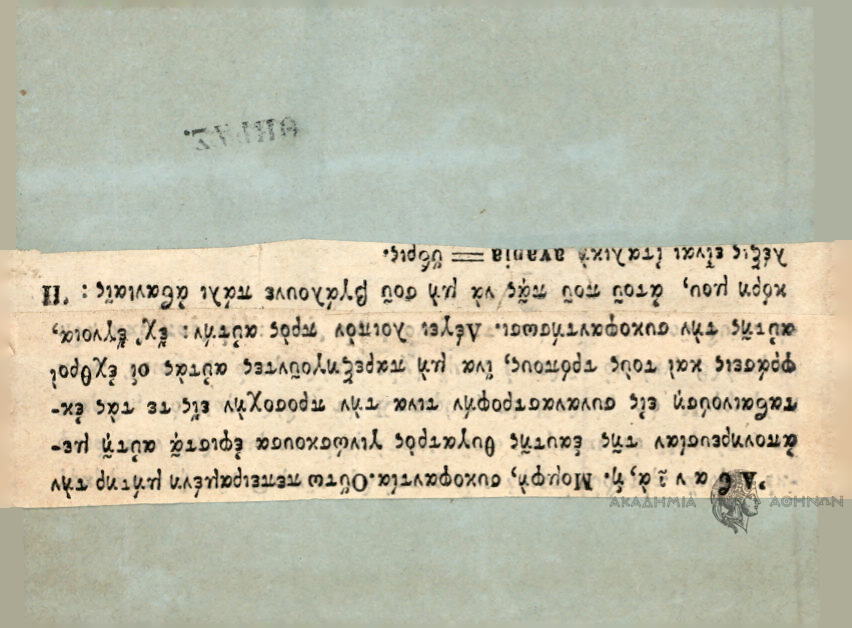 Ἀβανῖα, ἡ. Μομφὴ, συκοφαντία. Οὕτω πεπειραμένη μήτηρ τὴν
ἀπονηρευσίαν τῆς ἑαυτῆς θυγατρὸς γινώσκουσα ἐφιστᾷ αὐτῇ με-
ταβαινούσῃ εἰς συναναστροφήν τινα τὴν προσοχὴν εἴς τε τὰς ἐκ-
φράσεις καὶ τοὺς τρόπους, ἵνα μὴ παρεξηγοῦντες αὐτὰς οἱ ἐχθροὶ
αὐτῆς τὴν συκοφαντήσωσι. Λέγει λοιπὸν πρὸς αὐτήν: ἔχ' ἔγνοια,
κόρη μου, ἀτοῦ ποῦ πᾷς νὰ μὴ σοῦ βγάλουνε πάλι ἀβανιαῖς: Ἡ
λέξις εἶναι ἰταλικὴ avania = ὕβρις.
ΘΗΡΑΣ.
ΑΚΑΔΗΜΙΑ ΑΘΗΝΩΝ